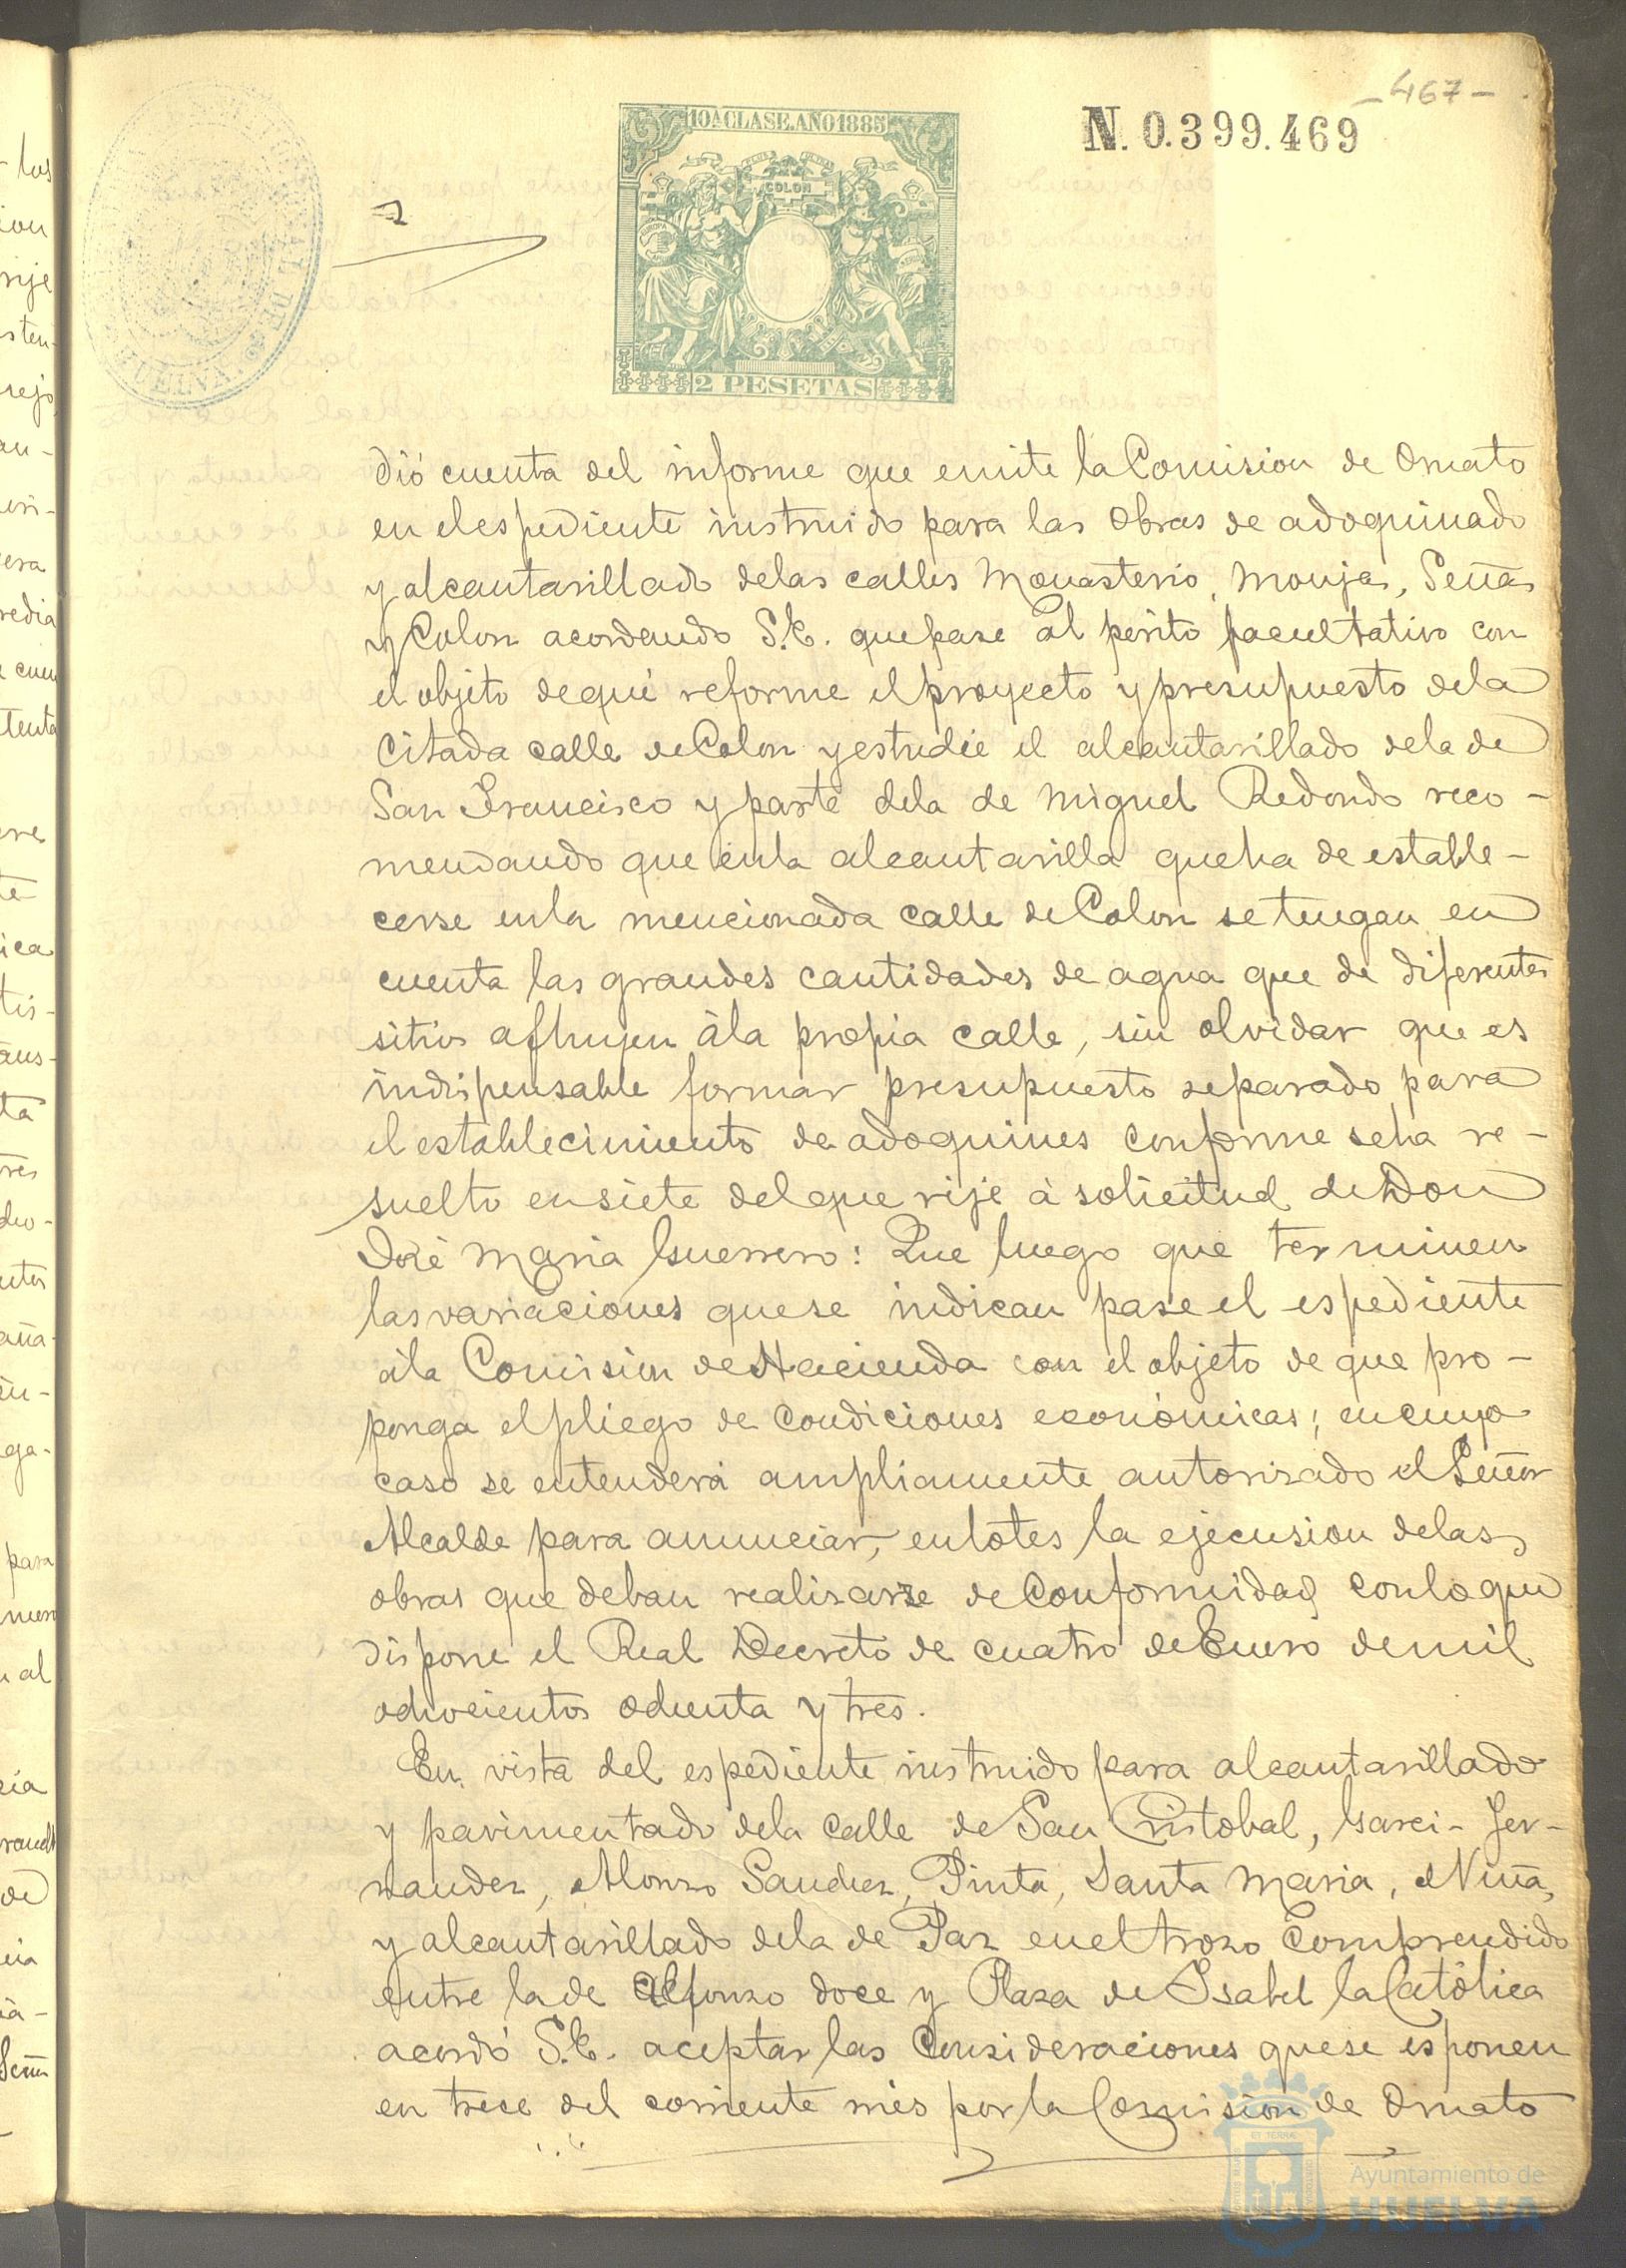 -467-
10ª CLASE. AÑO 1885
N. 0.399.469
PLUS ULTRA
COLON
EUROPA
2 PESETAS
HUELVA
dió cuenta del informe que emite la Comision de Ornato
en el espediente instruido para las obras de adoquinado
y alcantarillado delas calles Monasterio, Monjas, Señas
y Colon acordando S.E. que pase al perito facultativo con
el objeto de que reforme el proyecto y presupuesto dela
citada calle de Colon y estudie el alcantarillado dela de
San Francisco y parte dela de Miguel Redondo reco-
mendando que enla alcantarilla que ha de estable-
cerse enla mencionada calle de Colon se tengan en
cuenta las grandes cantidades de agua que de diferentes
sitios afluyen àla propia calle, sin olvidar que es
indispensable formar presupuesto separado para
el establecimiento de adoquines conforme seha re-
suelto en siete del que rije à solicitud de Don
José Maria Guerrero: Que luego que terminen
las variaciones que se indican pase el espediente
àla Comision de Hacienda con el objeto de que pro-
ponga el pliego de condiciones económicas; en cuyo
caso se entenderá ampliamente autorizado el Señor
Alcalde para anunciar, en lotes la ejecusion delas
obras que deban realizarse de conformidad con lo que
dispone el Real Decreto de cuatro de Enero de mil
ochocientos ochenta y tres.
En vista del espediente instruido para alcantarillado
y pavimentado dela calle de San Cristobal, Garci-Fer-
nandez, Alonzo Sanchez, Pinta, Santa Maria, Niña,
y alcantarillado dela de Paz en el trozo comprendido
entre la de Alfonzo doce y Plaza de Isabel la Católica
acordó S.E. aceptar las consideraciones que se esponen
en trece del corriente mes por la Comision de Ornato
Ayuntamiento de
HUELVA